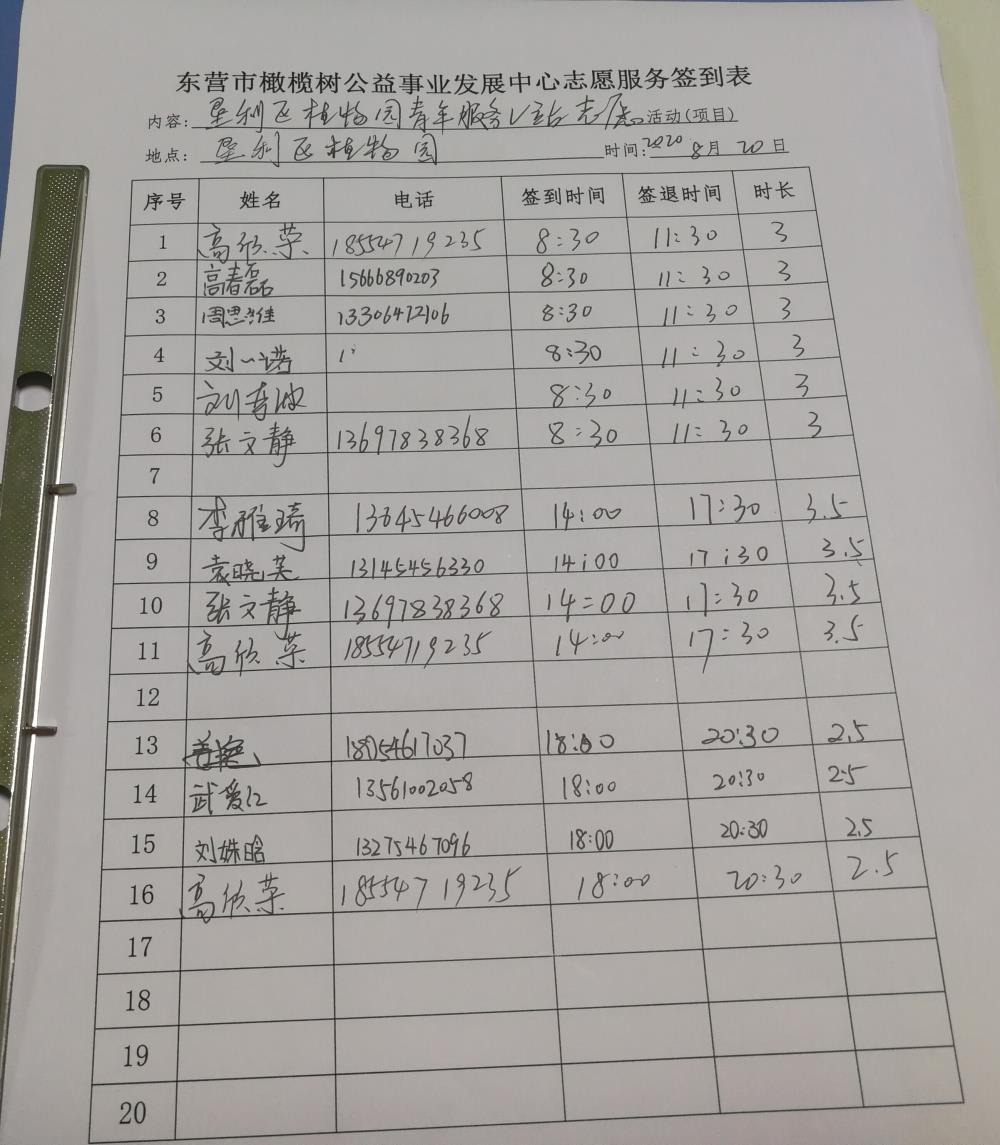 东营市橄榄树公益事业发展中心志愿服务签到表
内容: 垦利区植物园青年服务V站志愿活动(项目)
地点: 垦利区植物园 时间:2020 8月20日
序号 姓名 电话 签到时间 签退时间 时长
1 高欣荣 18554719235 8:30 11:30 3
2 高春磊 15666890203 8:30 11:30 3
3 周思维 13306472106 8:30 11:30 3
4 刘一诺 8:30 11:30 3
5 8:30 11:30 3
6 张文静 13697838368 8:30 11:30 3
7
8 李雅琦 13645466008 14:00 17:30 3.5
9 袁晓芙 13145456330 14:00 17:30 3.5
10 张文静 13697838368 14:00 17:30 3.5
11 高欣荣 18554719235 14:00 17:30 3.5
12
13 18954617037 18:00 20:30 2.5
14 武爱红 13561002058 18:00 20:30 2.5
15 刘姝晗 13275467096 18:00 20:30 2.5
16 高欣荣 18554719235 18:00 20:30 2.5
17
18
19
20